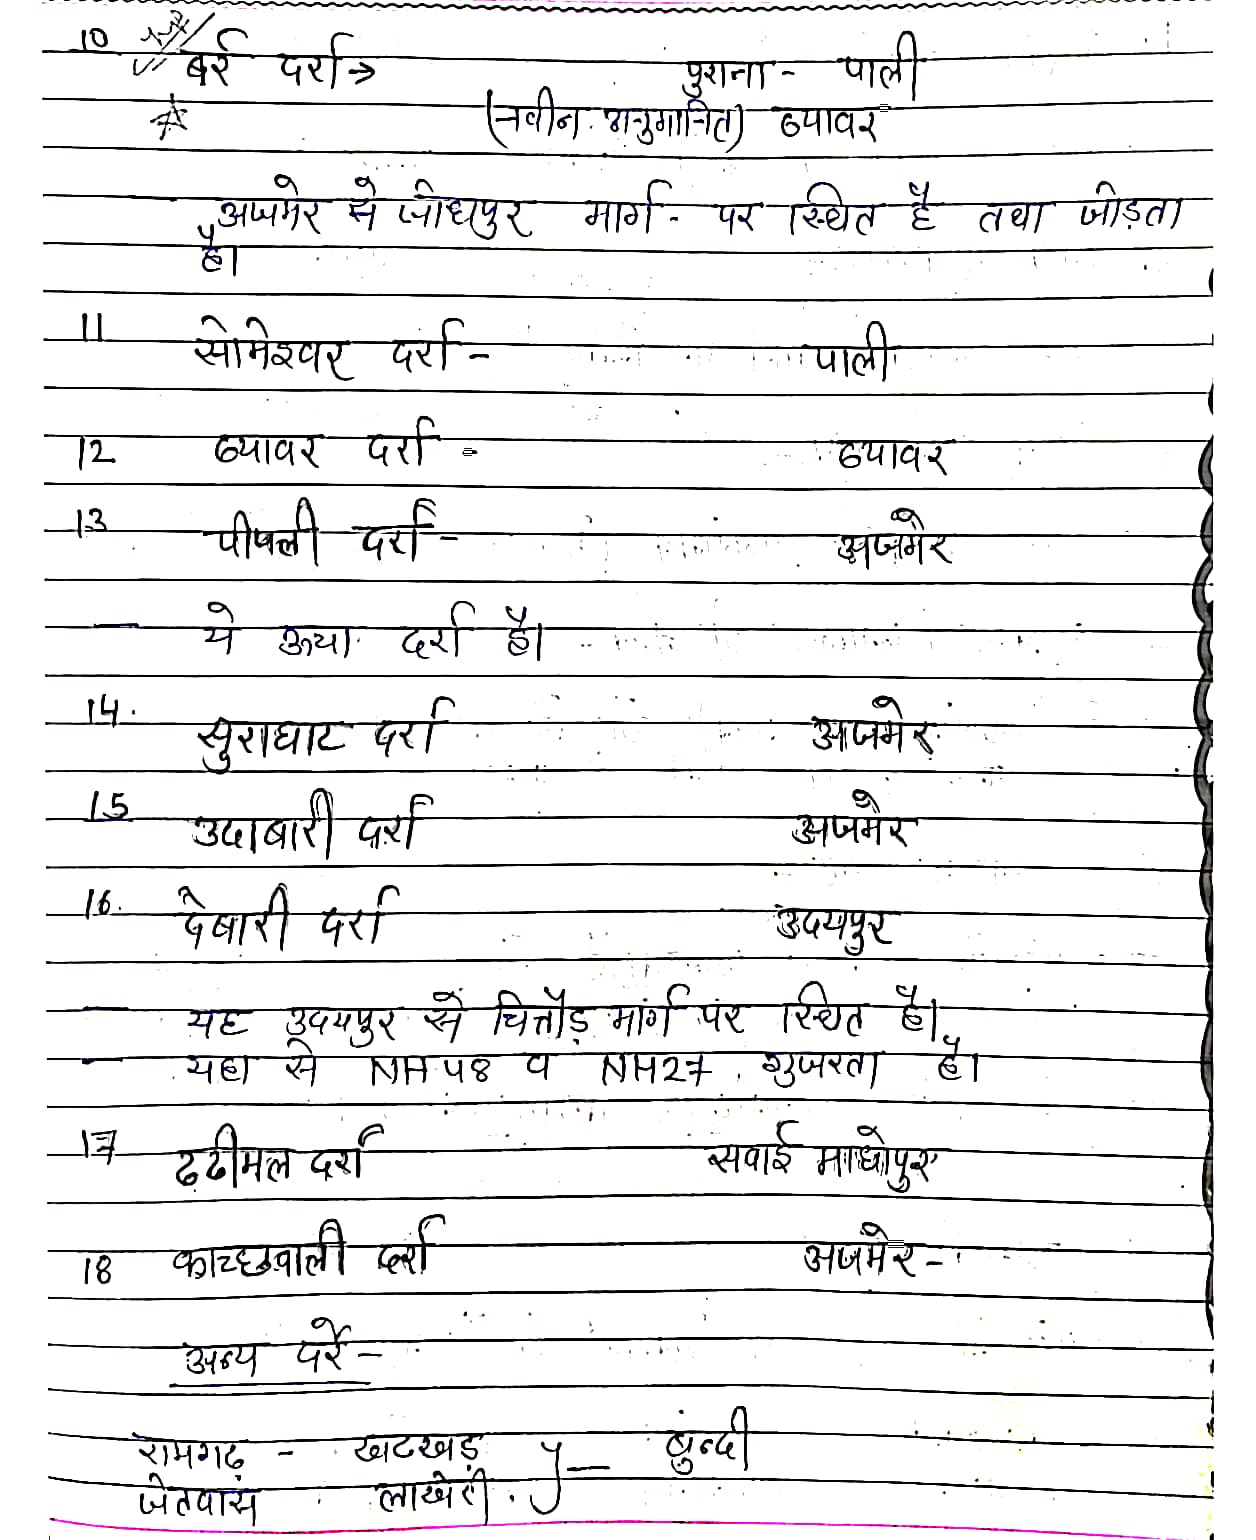 10 बर दर्रा → पुराना - पाली
(नवीन अनुमानित) ब्यावर
अजमेर से जोधपुर मार्ग - पर स्थित है तथा जोड़ता
है।
11 सोमेश्वर दर्रा - पाली
12 ब्यावर दर्रा - ब्यावर
13 पीपली दर्रा - अजमेर
— ये ऊचा दर्रा है।
14. सुराघाट दर्रा अजमेर
15 उदाबारी दर्रा अजमेर
16. देबारी दर्रा उदयपुर
— यह उदयपुर से चित्तौड़ मार्ग पर स्थित है।
— यहा से NH 48 व NH27 गुजरता है।
17 ढढीमल दर्रा सवाई माधोपुर
18 काच्छवाली दर्रा अजमेर -
अन्य दर्रे -
रामगढ़ - खटखड़ } — बुंन्दी
जेतवास लाखेरी.